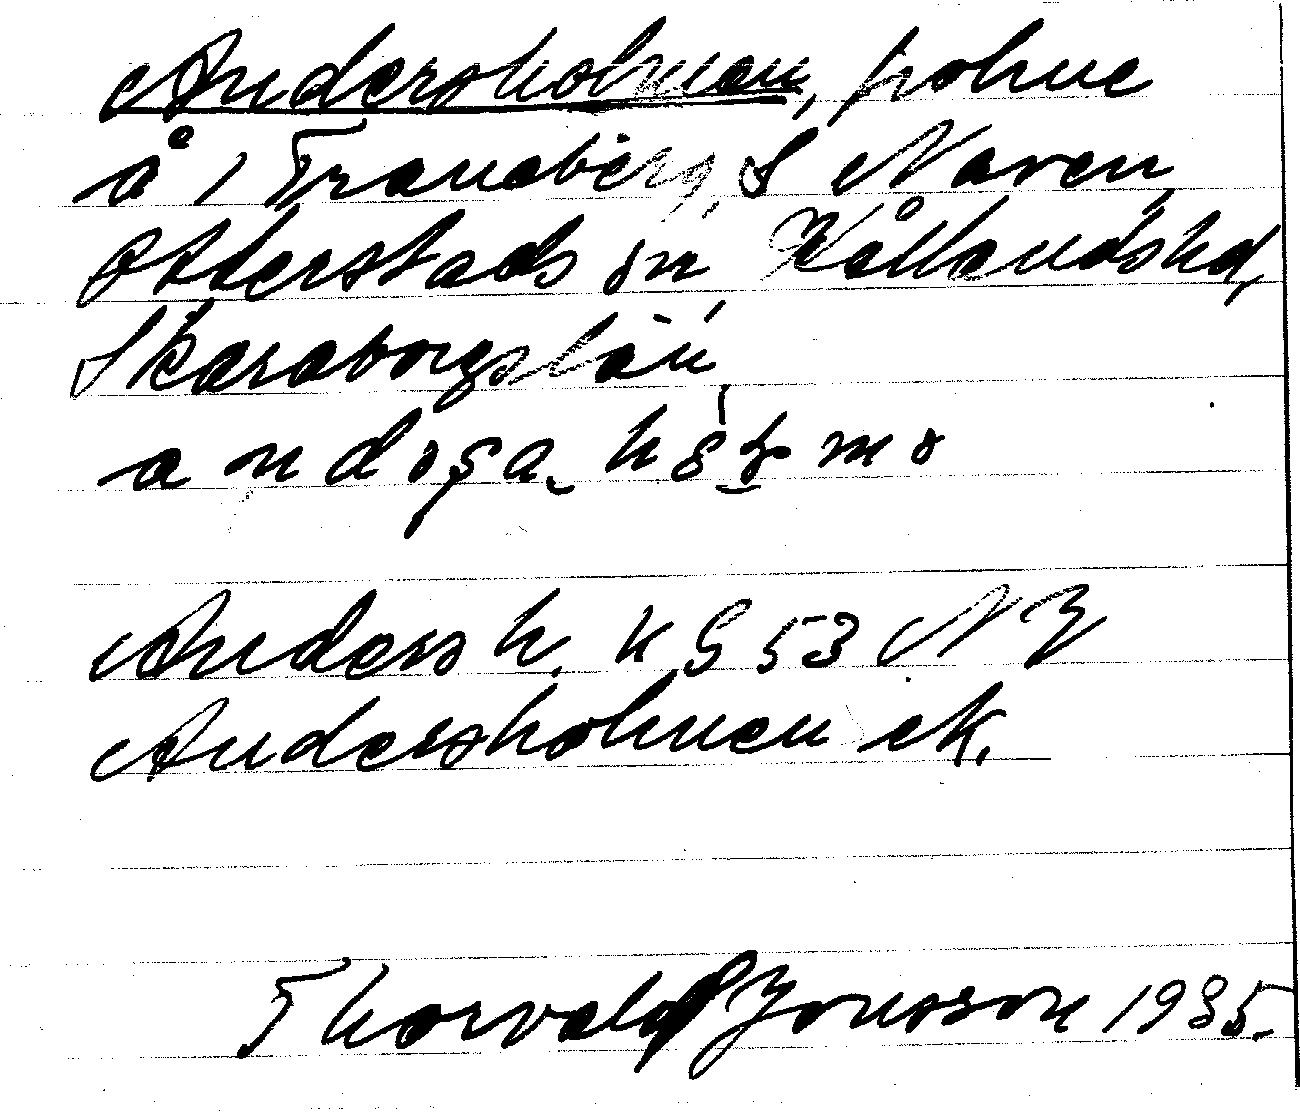 Andersholmen, holme
å 1 Traneberg, S Naven,
Otterstads sn, Kållandshd,
Skaraborgs län,
Andersh. KG 53 NZ
Andersholmen ek.
Thorvald Jonsson 1935.